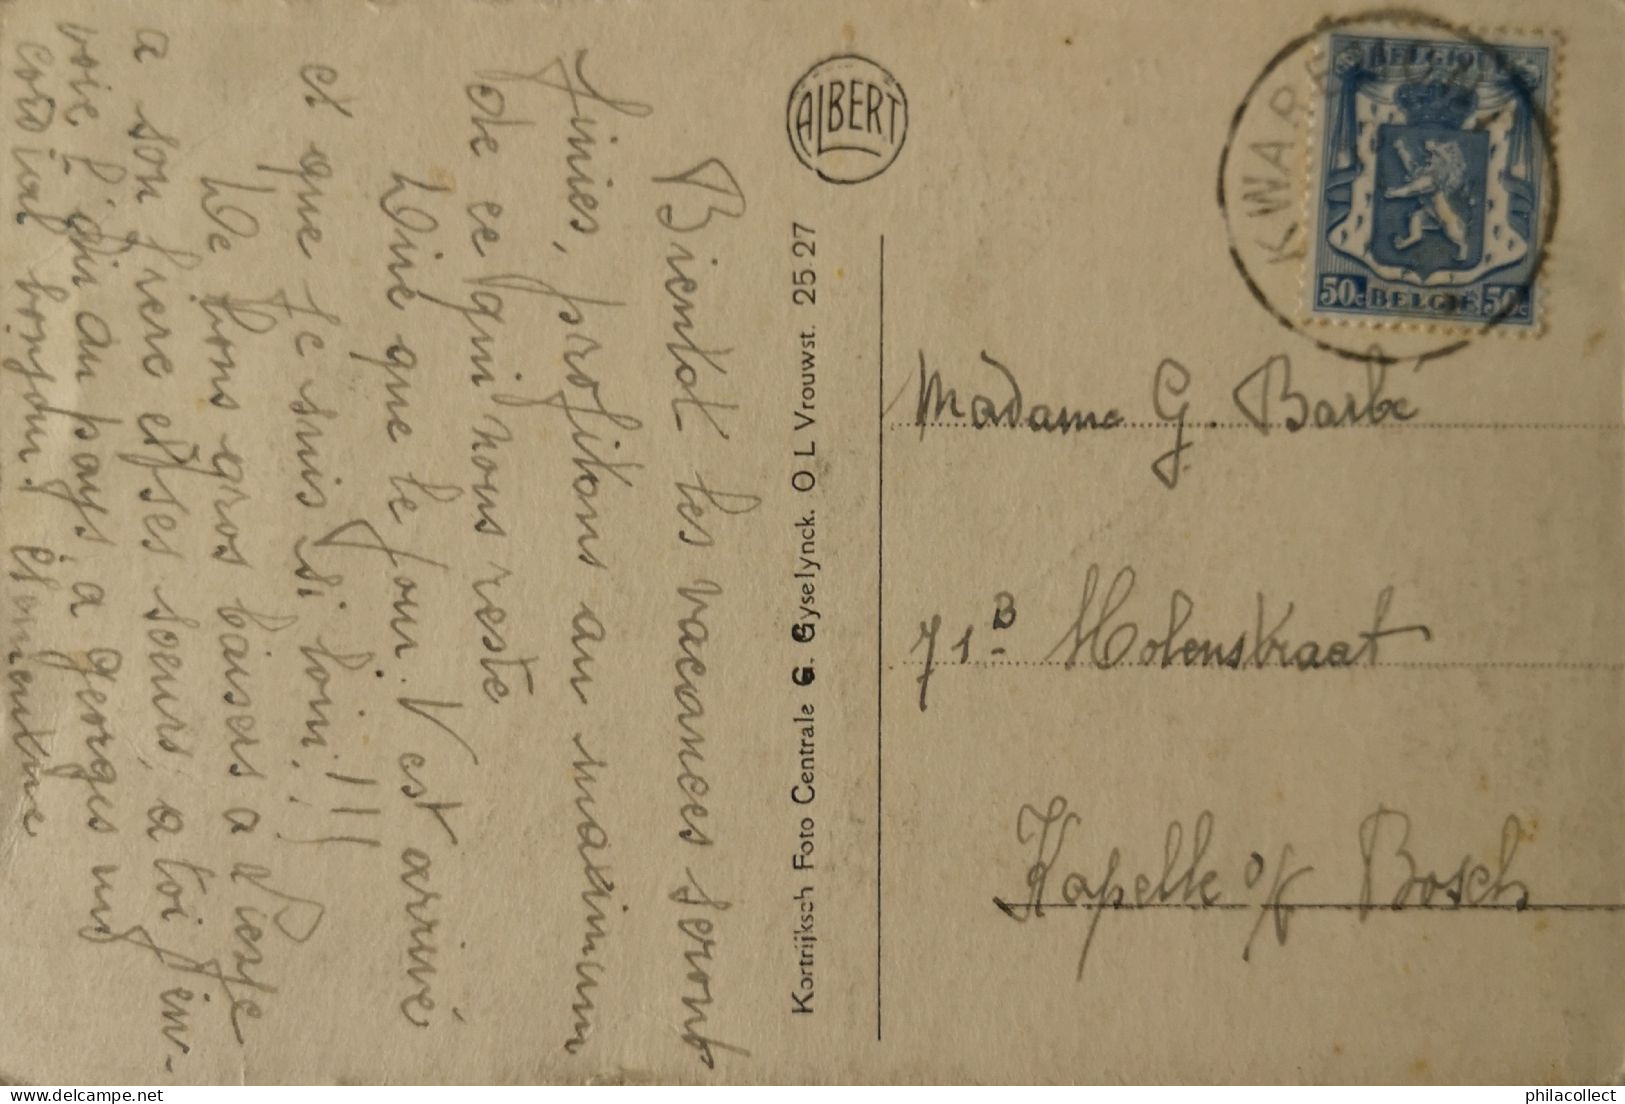 Bientot les vacances seront
finies, profitons au maximum
de ce qui nous reste
Dire que le jour. V est arrivé
et que je suis si loin!!!
De bons gros baisers a
a son frere et ses soeurs, a toi j'en-
voie l'air du pays, a georges un
cordial bonjour!
ALBERT
Kortrijksch Foto Centrale G. Gyselynck. O L Vrouwst. 25.27
KWAREMONT
BELGIQUE
50c BELGIË 50c
Madame G. Barbé
71B Molenstraat
Kapelle o/ Bosch
philacollect